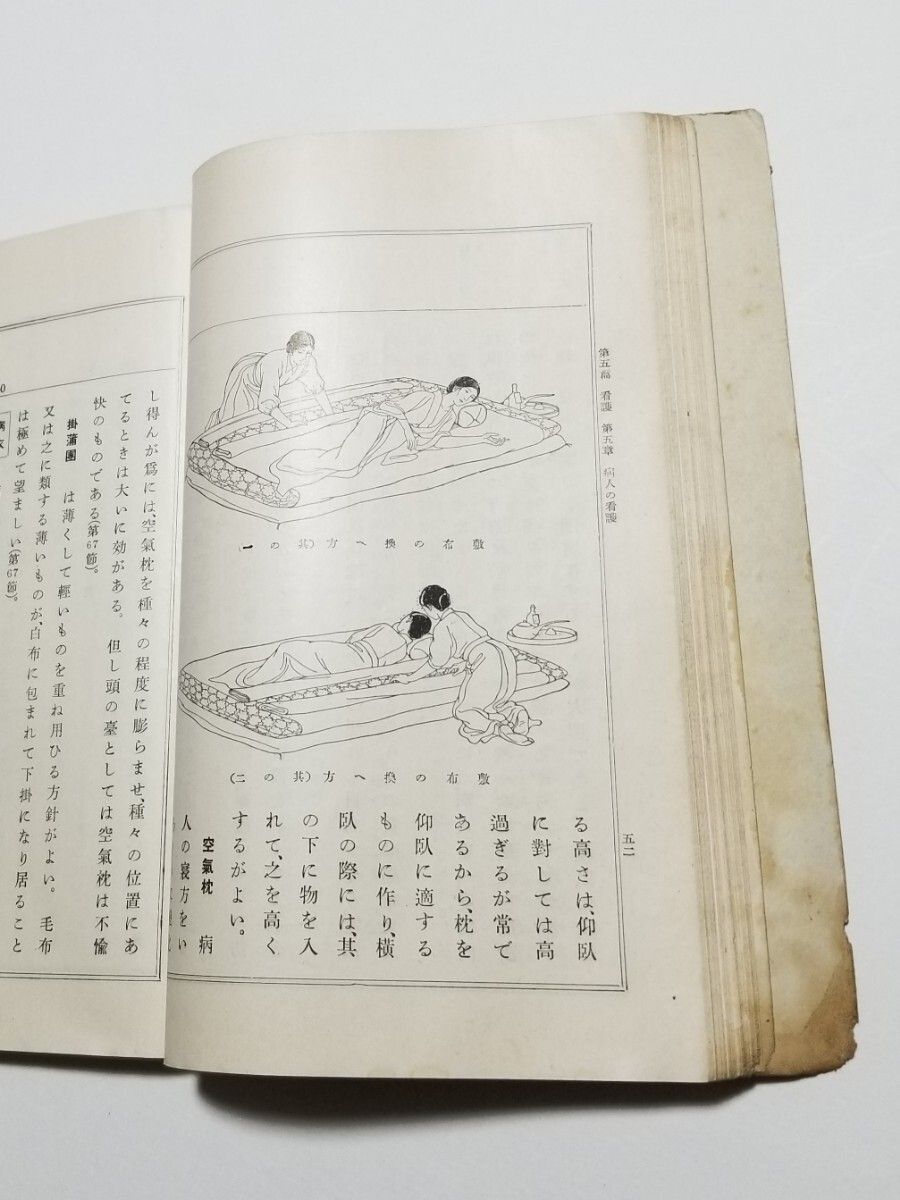 第五篇 看護 第五章 病人の看護
五二
敷布の換へ方(其の一)
敷布の換へ方(其の二)
る高さは、仰臥
に對しては高
過ぎるが常で
あるから、枕を
仰臥に適する
ものに作り、横
臥の際には、其
の下に物を入
れて、之を高く
するがよい。
空氣枕 病
人の寢方をい
し得んが爲には、空氣枕を種々の程度に膨らませ、種々の位置にあ
てるときは大いに効がある。但し頭の臺としては空氣枕は不愉
快のものである(第67節)。
掛蒲團 は薄くして輕いものを重ね用ひる方針がよい。毛布
又は之に類する薄いものが、白布に包まれて下掛になり居ること
は極めて望ましい(第67節)。